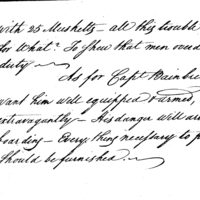 with 25 Musketts – all this trouble
for What? To Shew that men
duty
As for Capt Bainbri
want him well equipped & armed,
extravagantly – His danger will ari
boarding – Every thing necessary to p
Should be furnished.